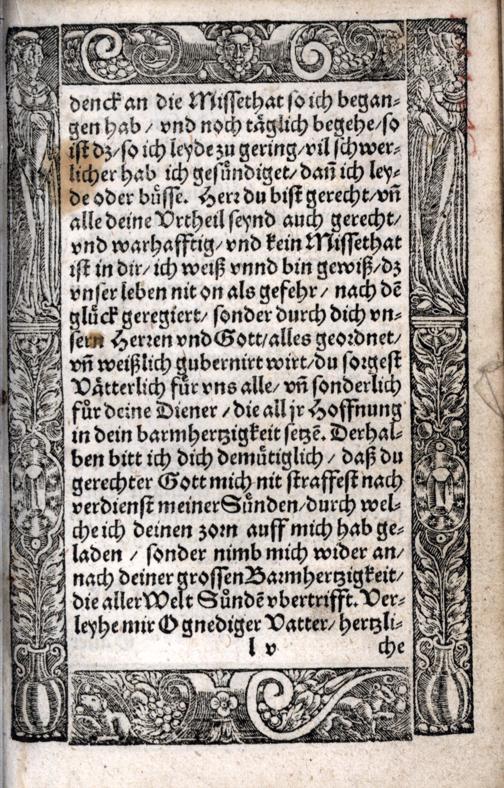 denck an die Missethat so ich began=
gen hab / vnd noch täglich begehe/so
ist dz/so ich leyde zu gering/vil schwer=
licher hab ich gesündiget/dañ ich ley=
de oder büsse. Herr du bist gerecht/vñ
alle deine Vrtheil seynd auch gerecht/
vnd warhafftig/vnd kein Missethat
ist in dir/ich weiß vnnd bin gewiß/dz
vnser leben nit on als gefehr / nach dē
glück geregiert/sonder durch dich vn=
sern Herren vnd Gott/alles geordnet/
vñ weißlich gubernirt wirt/du sorgest
Vätterlich für vns alle/vñ sonderlich
für deine Diener / die all jr Hoffnung
in dein barmhertzigkeit setzē. Derhal=
ben bitt ich dich demütiglich / daß du
gerechter Gott mich nit straffest nach
verdienst meiner Sünden/durch wel=
che ich deinen zorn auff mich hab ge=
laden / sonder nimb mich wider an/
nach deiner grossen Barmhertzigkeit/
die aller Welt Sündē vbertrifft. Ver=
leyhe mir O gnediger Vatter/hertzli=
l v che